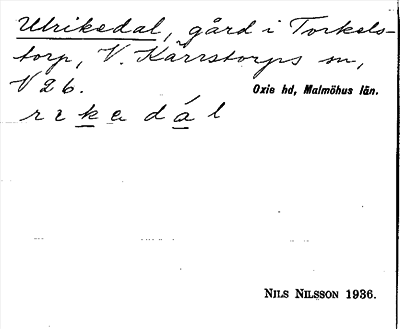 Ulrikedal, gård i Torkels-
torp, V. Kärrstorps sn,
V26.
Oxie hd, Malmöhus län.
r z k e d á l
NILS NILSSON 1936.